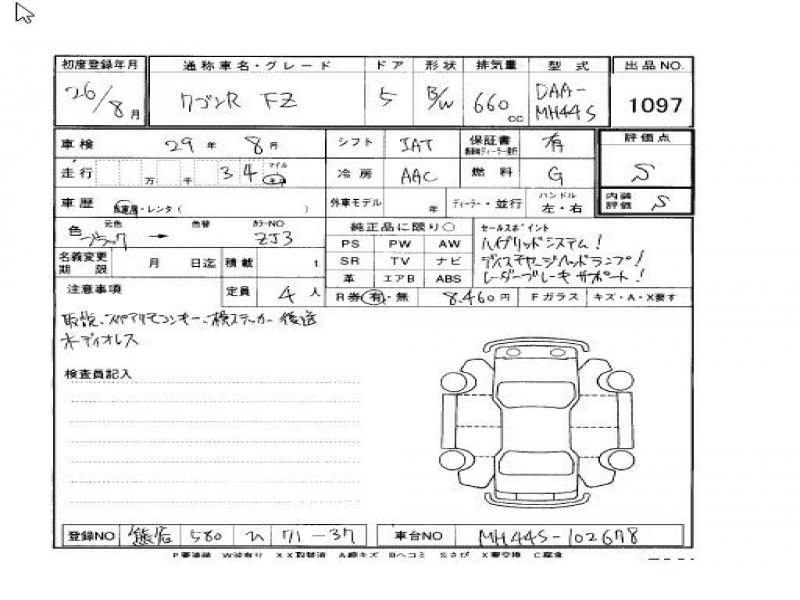 初度登録年月 通称車名・グレード ドア 形状 排気量 型式 出品NO.
26/8月 ワゴンR FZ 5 B/W 660cc DAA-MH44S 1097
車検 29年 8月 シフト IAT 保証書 有 評価点
走行 万 千 34 マイル 冷房 AAC 燃料 G S
車歴 ・レンタ( ) 外車モデル 年 ディーラー・並行 ハンドル 左・右 内装評価 S
色 元色 色替 カラーNO 純正品に限り○ セールスポイント
ブラック → ZJ3 PS PW AW ハイブリッドシステム!
名義変更期限 月 日迄 積載 t SR TV ナビ ディスチャージヘッドランプ!
革 エアB ABS レーダーブレーキサポート!
注意事項 定員 4人 R券 有・無 8.460円 Fガラス キズ・A・X要す
取説、スペアリモコンキー、検ステッカー後送
オーディオレス
検査員記入
登録NO 580 71-37 車台NO MH44S-102678
P要塗装 W波有り XX取替済 A線キズ Bヘコミ Sさび X要交換 C腐食